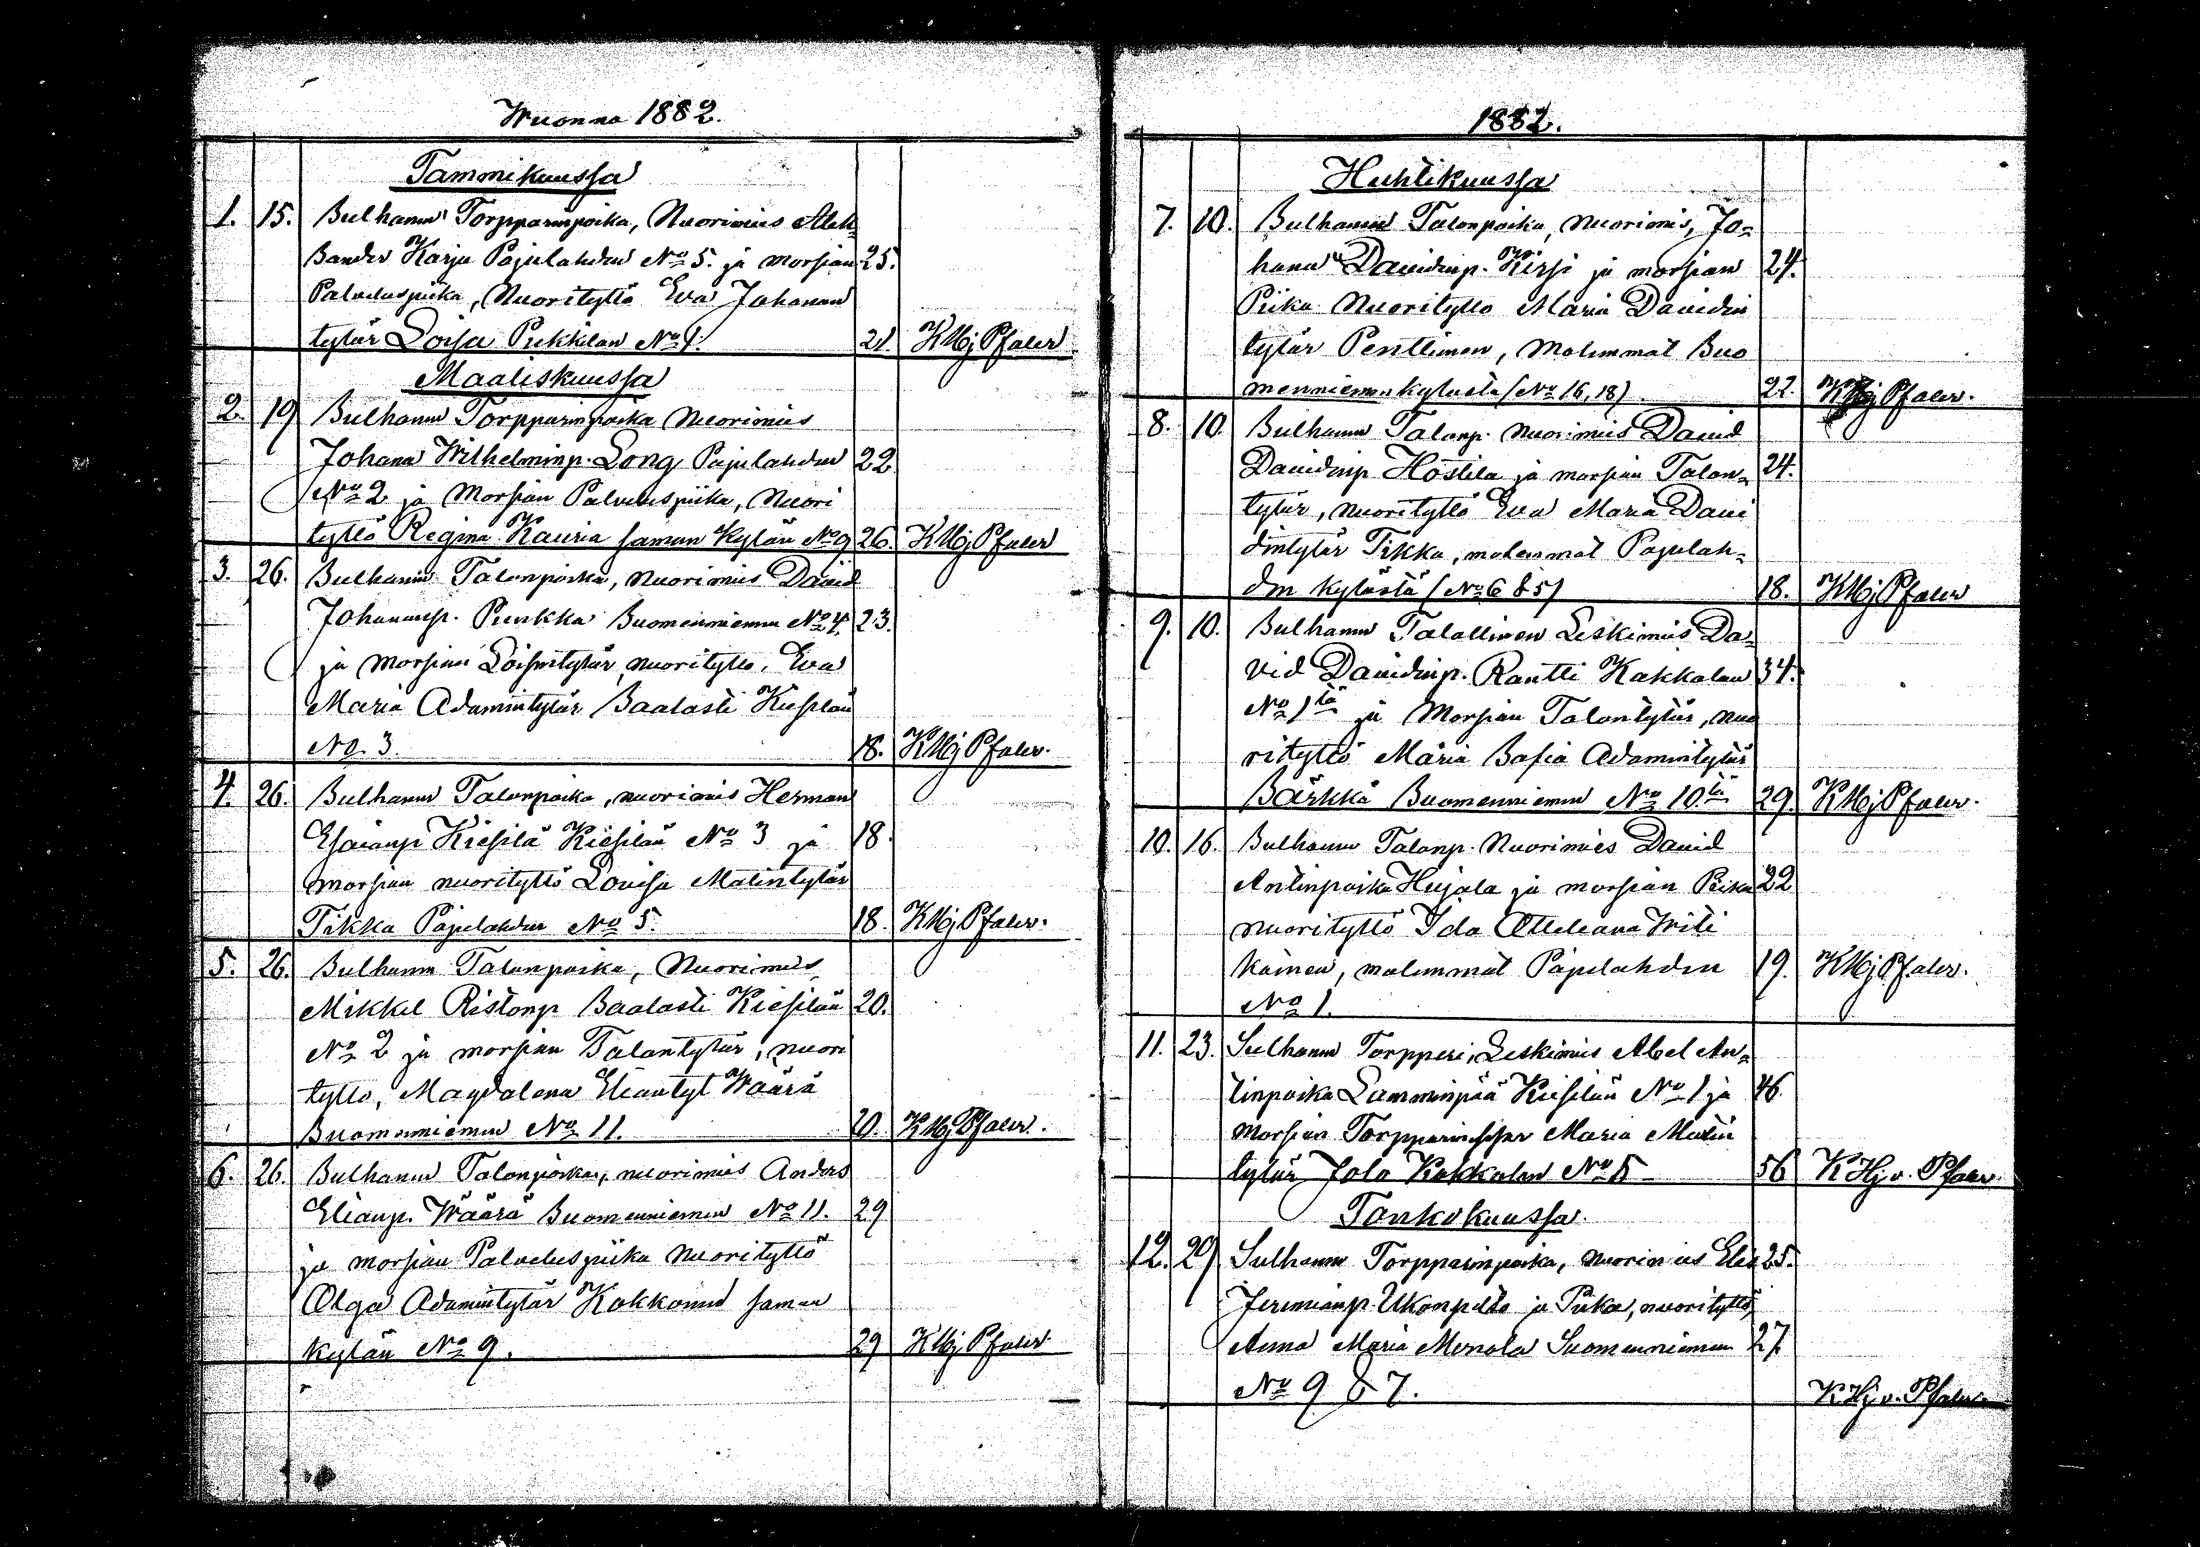 Wuonna 1882.
Tammikuussa
1. 15. Sulhanen Torpparinpoika, Nuorimies Alek-
sander Karju Pajulahden No 5. ja morsian 25.
Palveluspiika, Nuorityttö Eva Johanan
tytär Loisa Pukkilan No 1. 21. KHj Pfaler.
Maaliskuussa
2. 19 Sulhanen Torpparinpoika Nuorimies
Johana Wilhelminp. Long Pajulahden 22
No 2 ja Morsian Palveluspiika, Nuori
tyttö Regina Kauria saman Kylän No 9 26. KHj Pfaler
3. 26. Sulhanen Talonpoika, nuorimies David
Johanesp. Punkka Suomenniemen No 4. 23.
ja Morsian Loismtytär, nuorityttö, Eva
Maria Adamintytär Saalasti Kiesilän
No. 3. 18. KHj Pfaler.
4. 26. Sulhanen Talonpoika, nuorimies Herman
Esaianp Kiesilä Kiesilän No 3 ja 18.
morsian nuorityttö Lovisa Matintytär
Tikka Pajulahden No 5. 18. KHj Pfaler.
5. 26. Sulhanen Talonpoika, Nuorimies
Mikkel Ristonp Saalasti Kiesilän 20.
No 2 ja morsian Talontytär, nuori
tyttö, Magdalena Eliantyt Wäärä
Suomenniemen No 11. 20. KHj Pfaler.
6. 26. Sulhanen Talonpoika, nuorimies Anders
Elianp. Wäärä Suomenniemen No 11. 29
ja morsian Palveluspiika Nuorityttö
Olga Adamintytär Kokkonen saman
kylän No 9. 29 KHj Pfaler
1882.
Huhtikuussa
7. 10. Sulhanen Talonpoika, Nuorimis, Jo-
hana Davidinp. Kirsi ja morsian 24.
Piika Nuorityttö Maria Davidin
tytär Penttinen, Molemmat Suo
menniemen kylästä (No 16, 18). 22. KHj Pfaler.
8. 10. Sulhanen Talonp. Nuorimies David
Davidinp Hostila ja morsian Talon- 24.
tytär, nuorityttö Eva Maria Davi
dintytär Tikka, molemmat Pajulah-
den kylästä (No 6 & 5) 18. KHj Pfaler
9. 10. Sulhanen Talollinen Leskimies Da-
vid Davidinp. Rantti Kakkolan 34.
No 1tä ja Morsian Talontytär, nuo
rityttö Maria Sofia Adamintytär
Särkkä Suomenniemen No 10.tä 29. KHj Pfaler.
10. 16. Sulhanen Talonp. Nuorimies David
Antinpoika Hujala ja morsian Piika 22
nuorityttö Ida Otteliana Witi
kainen, molemmat Pajulahden 19. KHj Pfaler.
No 1.
11. 23. Sulhanen Torpperi, Leskimies Abel An-
tinpoika Lamminpää Kiesilän No 1 ja 46.
Morsian Torpparinleski Maria Matin
tytär Jola Kakkolan No 5 56 KHj v. Pfaler
Toukokuussa.
12. 29 Sulhanen Torpparinpoika, nuorimies Elias 25.
Jeremianp. Ukonpelto ja Piika, nuorityttö,
Anna Maria Menola Suomenniemen 27.
No 9 & 7. KHj v. Pfaler.